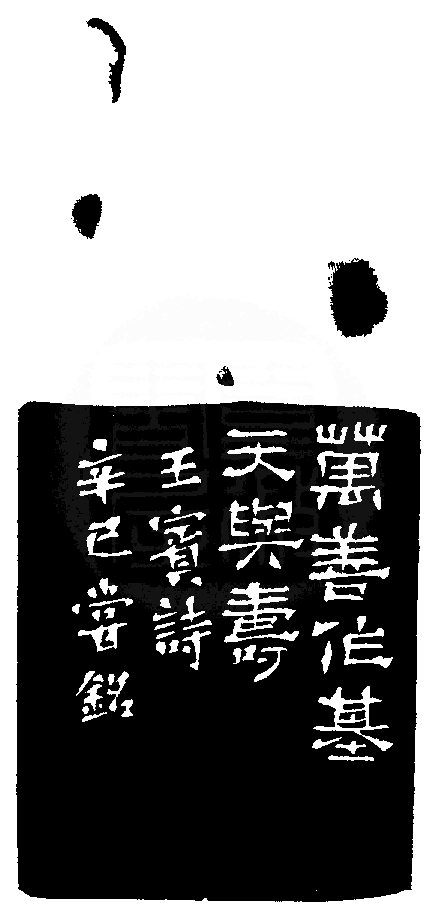 萬善作基
天與壽
王賓詩
辛巳甞銘